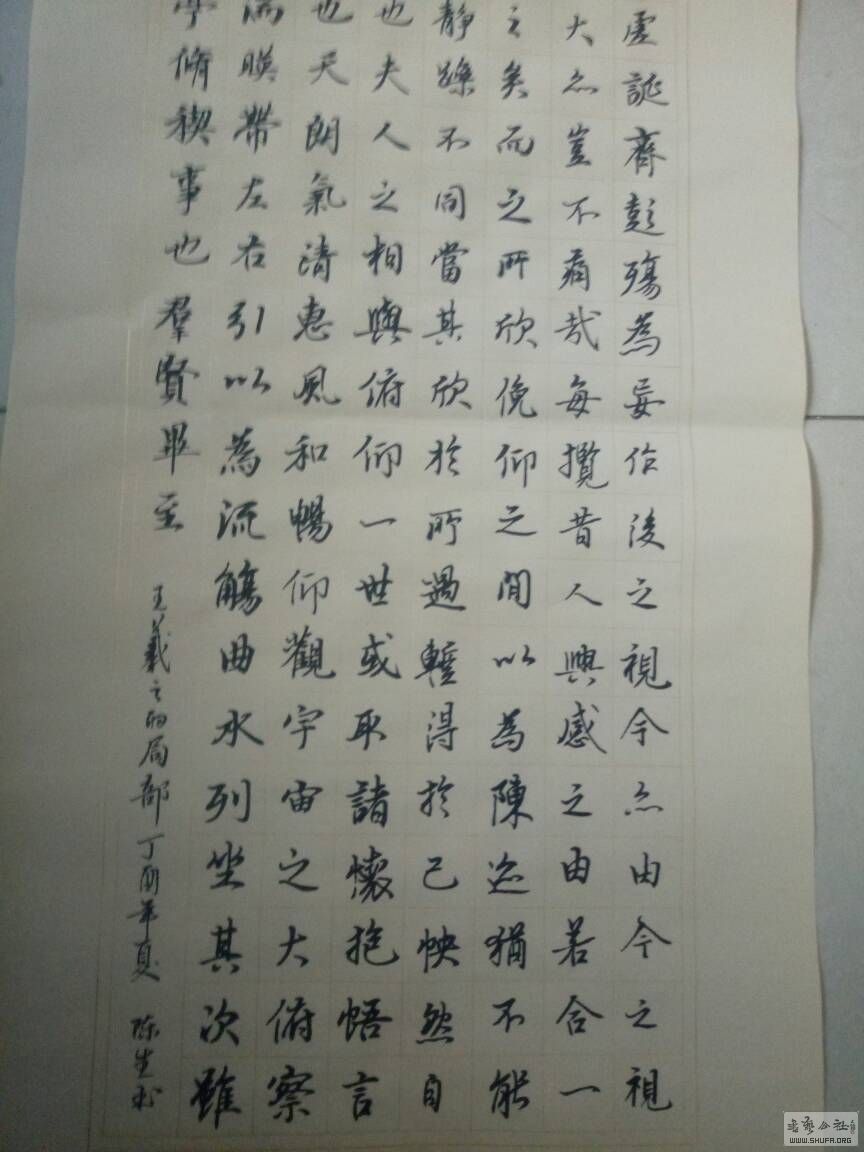 虛誕齊彭殤為妄作後之視今亦由今之視
大亦豈不痛哉每攬昔人興感之由若合一
之矣而之所欣俛仰之間以為陳迹猶不能
靜躁不同當其欣於所遇蹔得於己怏然自
也夫人之相與俯仰一世或取諸懷抱悟言
也天朗氣清惠風和暢仰觀宇宙之大俯察
湍暎帶左右引以為流觴曲水列坐其次雖
脩稧事也羣賢畢至
王羲之的局部 丁酉年夏 陈生书
书艺公社
WWW.SHUFA.ORG